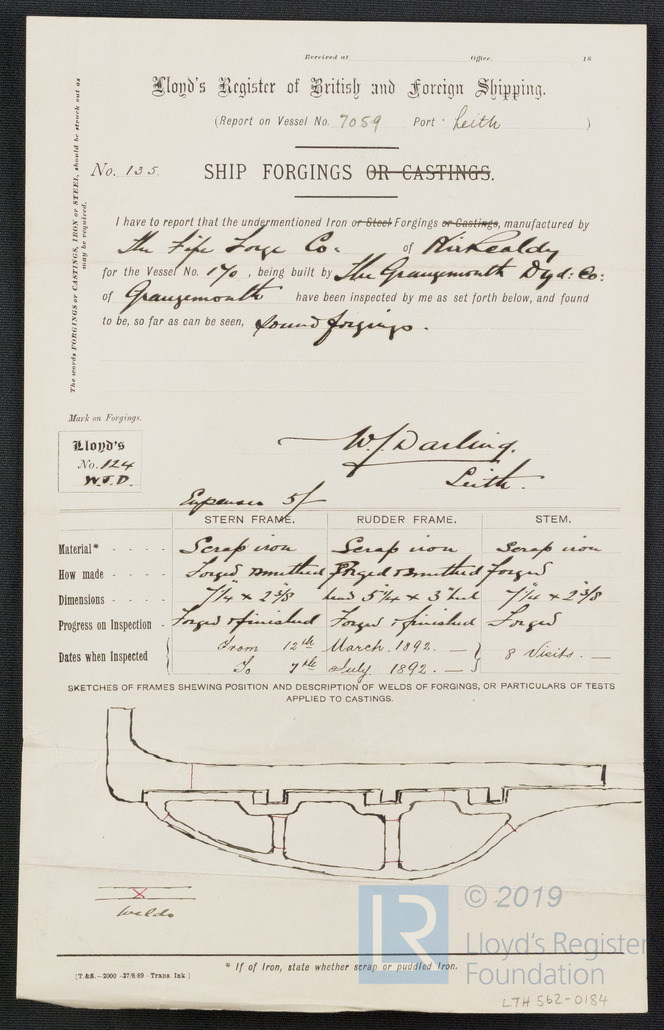 Received at Office. 18
Lloyd's Register of British and Foreign Shipping.
(Report on Vessel No. 7059 Port Leith )
No. 135. SHIP FORGINGS OR CASTINGS.
The words FORGINGS or CASTINGS, IRON or STEEL, should be struck out as
may be required.
I have to report that the undermentioned Iron or Steel Forgings or Castings, manufactured by
The Fife Forge Co. of Kirkcaldy
for the Vessel No. 170, being built by The Grangemouth Dyd: Co:
of Grangemouth have been inspected by me as set forth below, and found
to be, so far as can be seen, sound forgings.
Mark on Forgings.
Lloyd's
No. 124
W.J.D.
W.J. Darling.
Leith.
Expenses 5/
STERN FRAME. RUDDER FRAME. STEM.
Material* Scrap iron Scrap iron Scrap iron
How made Forged & smithed Forged & smithed Forged
Dimensions 7 1/4 x 2 5/8 head 5 1/4 x 3 heel 7 1/4 x 2 3/8
Progress on Inspection Forged & finished Forged & finished Forged
Dates when Inspected From 12th March. 1892. 8 Visits.
To 7th July 1892.
SKETCHES OF FRAMES SHEWING POSITION AND DESCRIPTION OF WELDS OF FORGINGS, OR PARTICULARS OF TESTS
APPLIED TO CASTINGS.
Welds
* If of Iron, state whether scrap or puddled Iron.
[T & S.—2000—27/8/89 Trans. Ink]
LR © 2019
Lloyd's Register
Foundation
LTH 562-0184